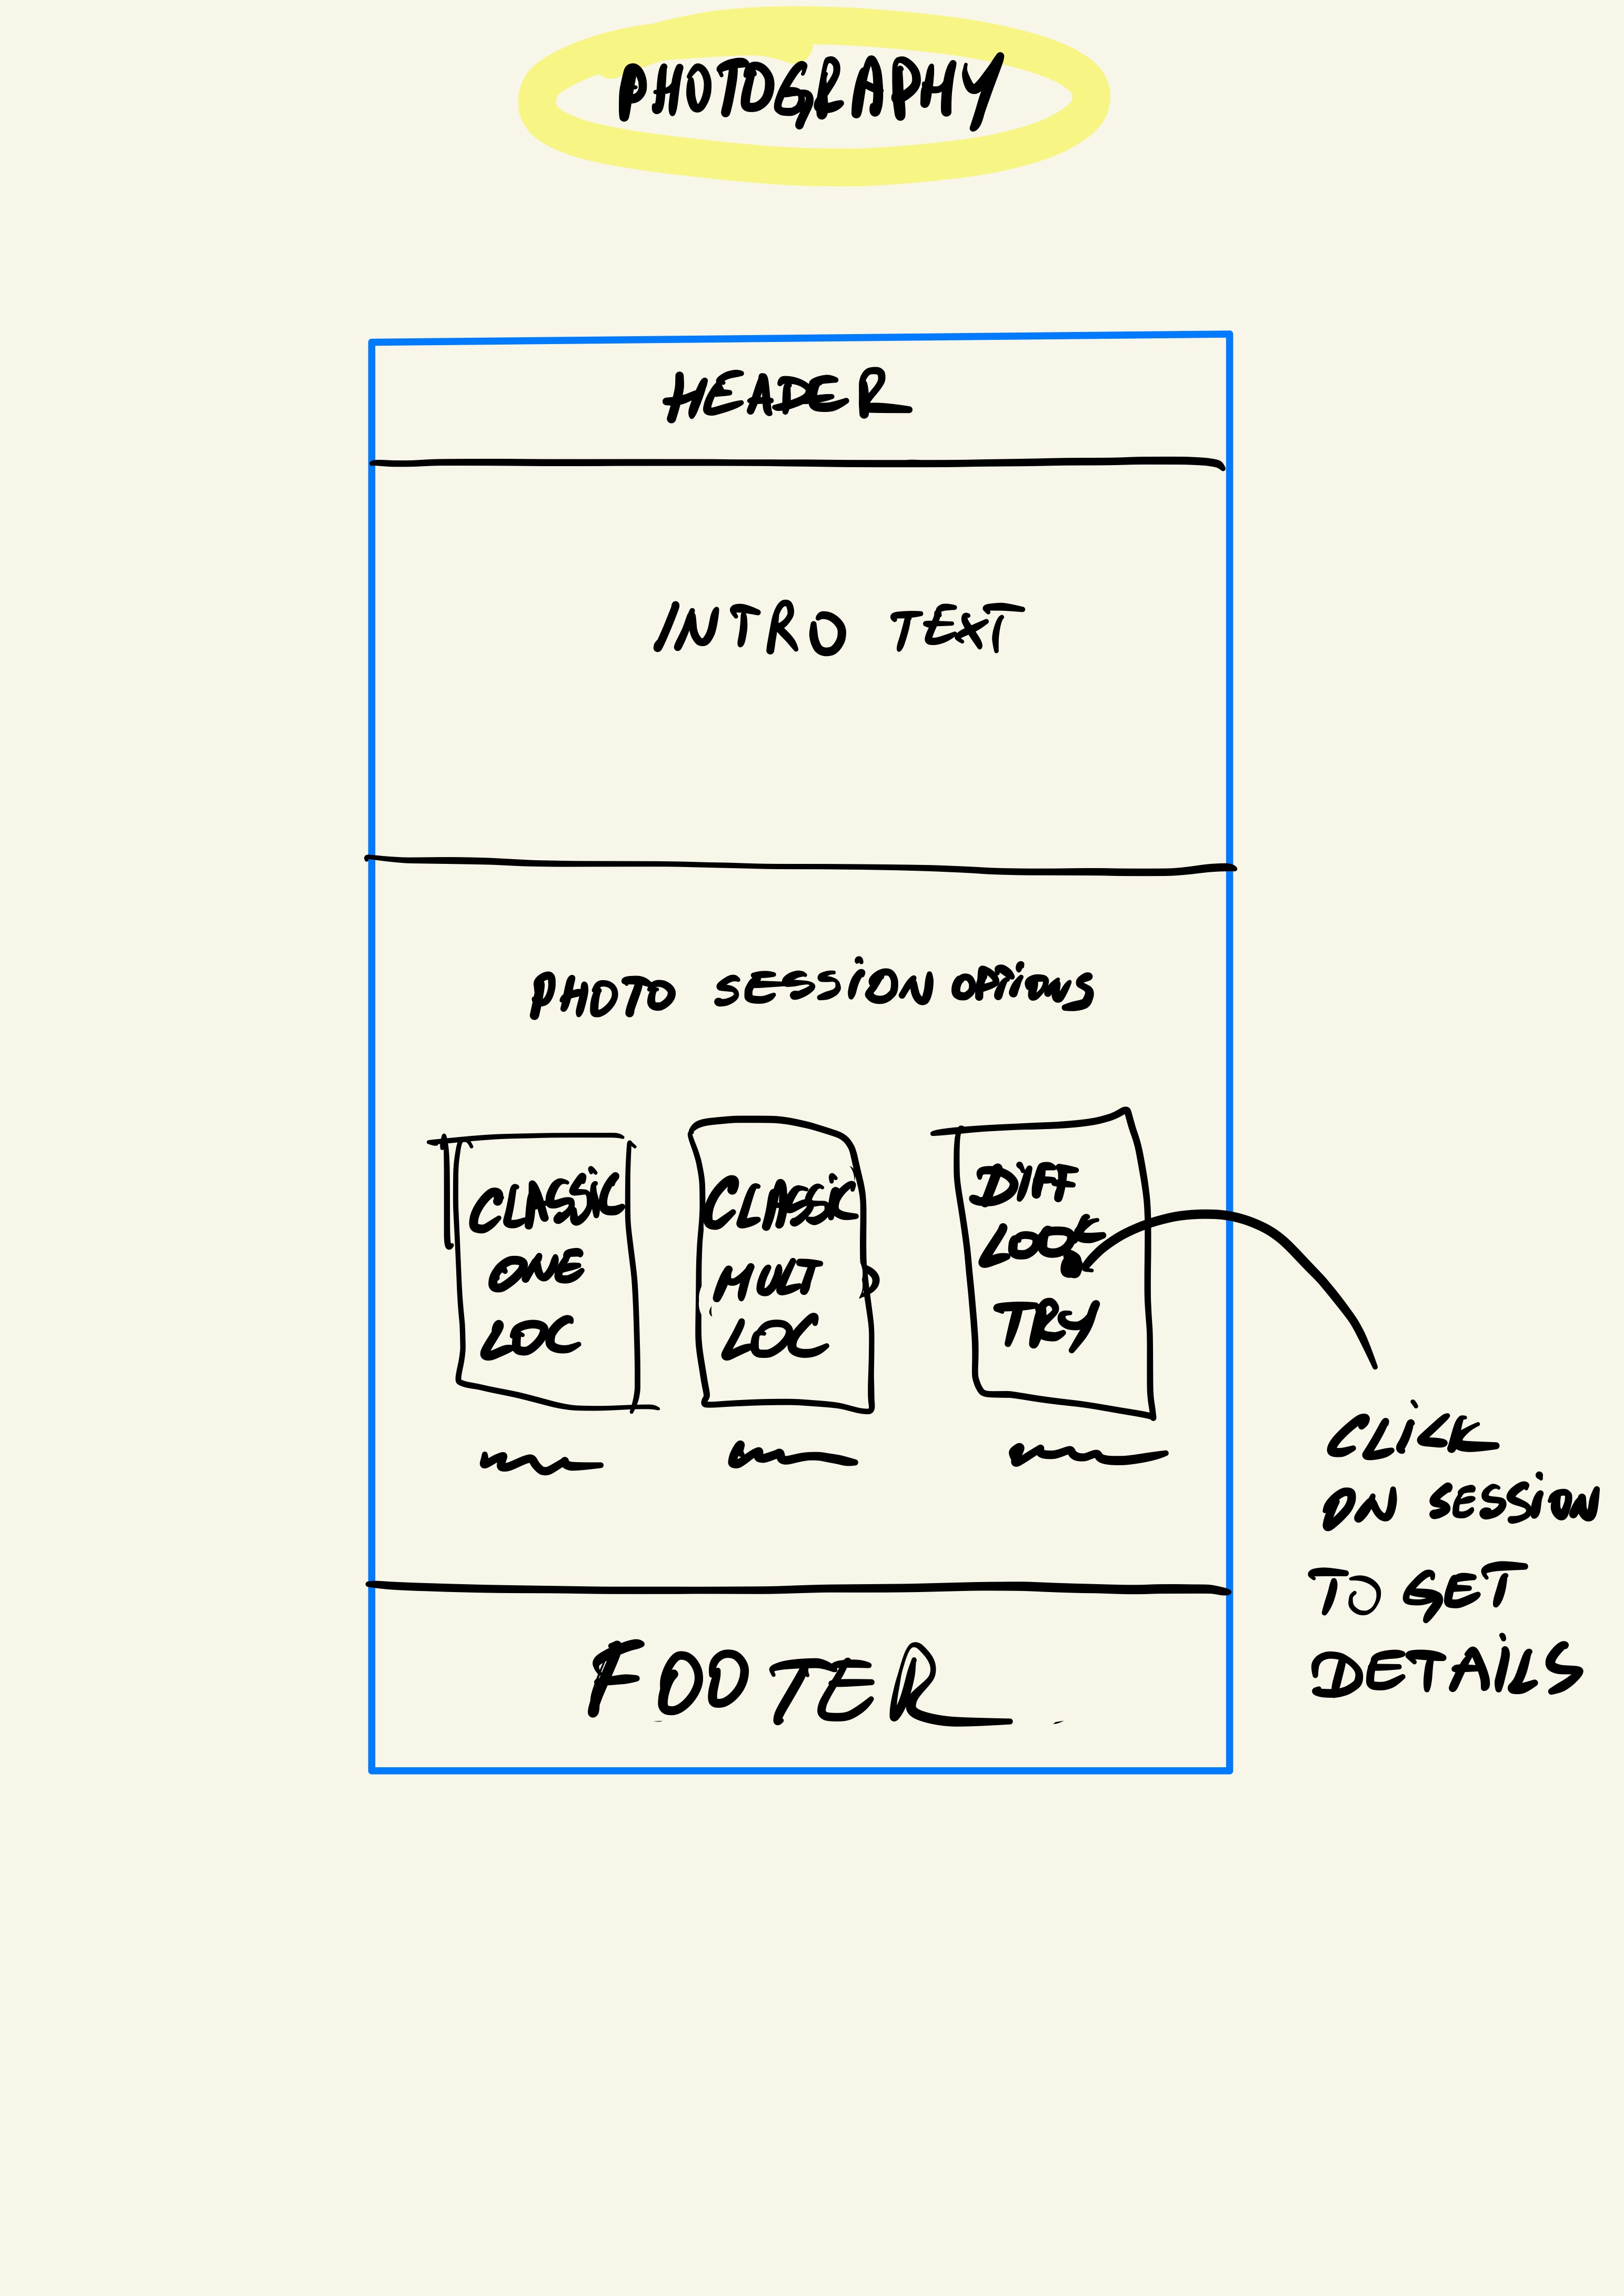 PHOTOGRAPHY
HEADER
INTRO TEXT
PHOTO SESSION OPTIONS
CLASSIC
ONE
LOC
CLASSIC
MULT
LOC
DIFF
LOOK
TRY
CLICK
ON SESSION
TO GET
DETAILS
FOOTER